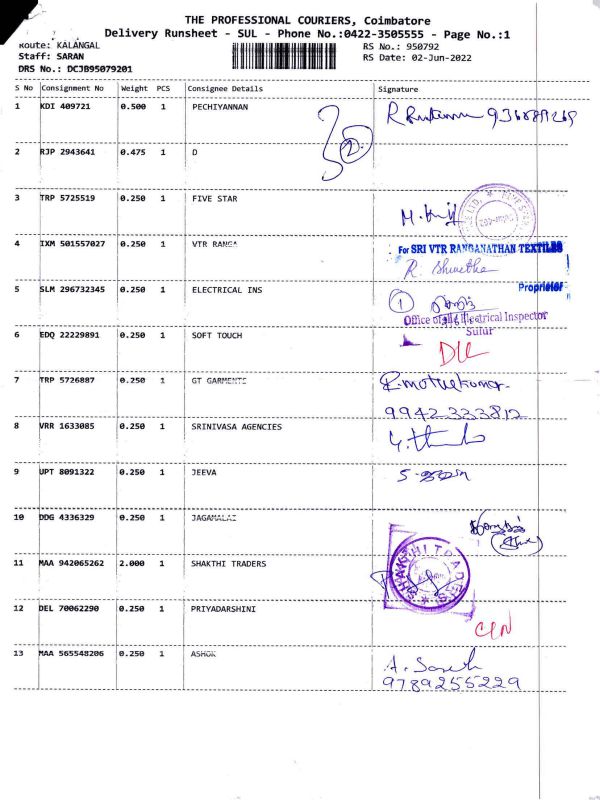 THE PROFESSIONAL COURIERS, Coimbatore
Delivery Runsheet - SUL - Phone No.:0422-3505555 - Page No.:1
Route: KALANGAL
Staff: SARAN
DRS No.: DCJB95079201
RS No.: 950792
RS Date: 02-Jun-2022
S No Consignment No Weight PCS Consignee Details Signature
1 KDI 409721 0.500 1 PECHIYANNAN
2 RJP 2943641 0.475 1 D 2
3 TRP 5725519 0.250 1 FIVE STAR
4 IXM 501557027 0.250 1 VTR RANGA For SRI VTR RANGANATHAN TEXTILES
R. Shwetha
Proprietor
5 SLM 296732345 0.250 1 ELECTRICAL INS 1
Office of the Electrical Inspector
Sulur
6 EDQ 22229891 0.250 1 SOFT TOUCH
7 TRP 5726887 0.250 1 GT GARMENTS R. mothukumar.
9942333812
8 VRR 1633085 0.250 1 SRINIVASA AGENCIES
9 UPT 8091322 0.250 1 JEEVA
10 DDG 4336329 0.250 1 JAGAMALAI
11 MAA 942065262 2.000 1 SHAKTHI TRADERS SHAKTHI TRADERS
12 DEL 70062290 0.250 1 PRIYADARSHINI
13 MAA 565548206 0.250 1 ASHOK
9789255229